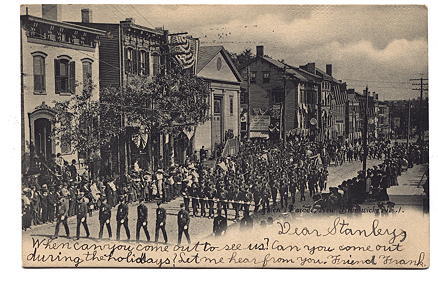 Dear Stanley,
When can you come out to see us? Can you come out
during the holidays? Let me hear from you. Friend Frank.